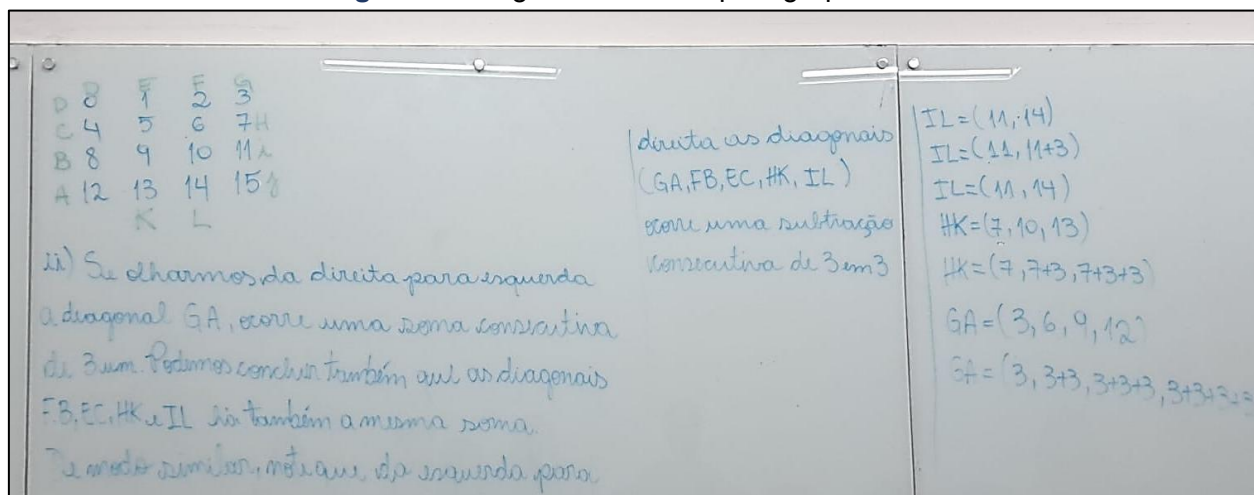 D E F G
D 0 1 2 3
C 4 5 6 7 H
B 8 9 10 11 i
A 12 13 14 15 j
K L
ii) Se olharmos da direita para esquerda
a diagonal GA, ocorre uma soma consecutiva
de 3 um. Podemos concluir também que as diagonais
FB, EC, HK e IL também a mesma soma.
De modo similar, note que, da esquerda para
direita as diagonais
(GA, FB, EC, HK, IL)
ocorre uma subtração
consecutiva de 3 em 3
IL=(11,14)
IL=(11, 11+3)
IL=(11, 14)
HK=(7, 10, 13)
HK=(7, 7+3, 7+3+3)
GA=(3, 6, 9, 12)
GA=(3, 3+3, 3+3+3, 3+3+3+3